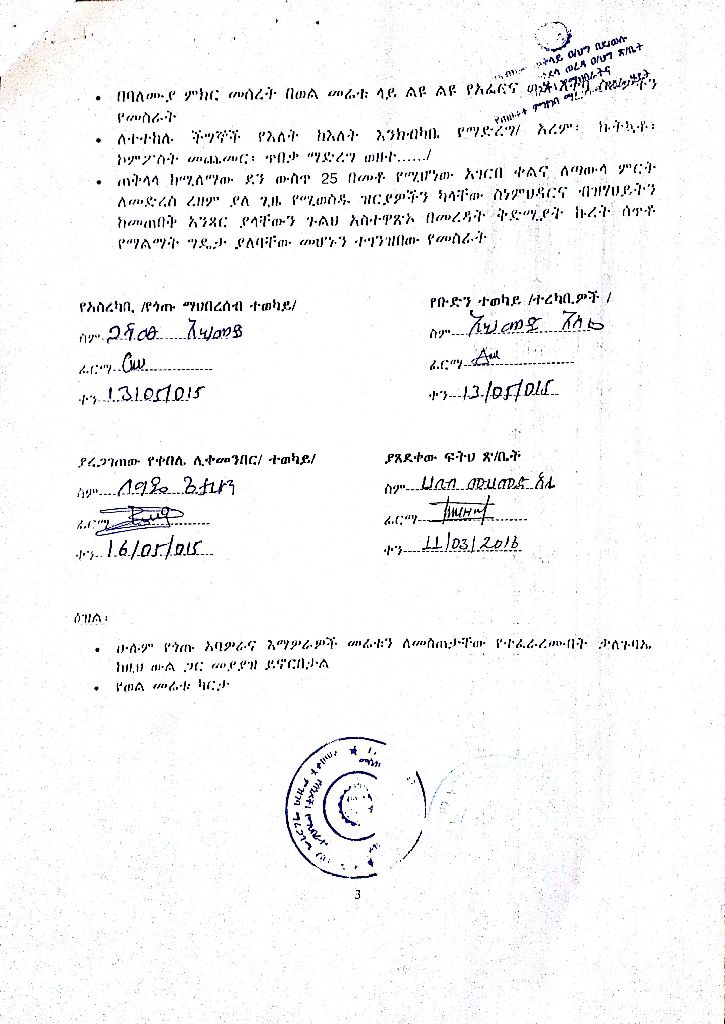 • በባለሙያ ምክር መሰረት በወል መሬቱ ላይ ልዩ ልዩ የአፈርና
የመስራት
• ለተተከሉ ችግኞች የእለት ከእለት እንክብካቤ የማድረግ/ አረም፣ ኩትኳቶ፣
ኮምፖስት መጨመር፣ ጥበቃ ማድረግ ወዘተ....../
• ጠቅላላ ከሚለማው ደን ውስጥ 25 በመቶ የሚሆነው አገርበ ቀልና ለጣውላ ምርት
ለመድረስ ረዘም ያለ ጊዜ የሚወስዱ ዝርያዎችን ካላቸው ስነምህዳርና ብዝሃህይትን
ከመጠበቅ አንጻር ያላቸውን ጉልህ አስተዋጽኦ በመረዳት ቅድሚያት ኩረት ሰጥቶ
የማልማት ግዴታ ያለባቸው መሆኑን ተገንዝበው የመስራት
የአስረካቢ /የጎጡ ማህበረሰብ ተወካይ/
የቡድን ተወካይ /ተረካቢዎች /
ስም አህመድ
ስም አህመድ አሊ
ፊርማ
ፊርማ
ቀን 13/05/015
ቀን 13/05/015
ያረጋገጠው የቀበሌ ሊቀመንበር/ ተወካይ/
ያጸደቀው ፍትህ ጽ/ቤት
ስም
ስም መሀመድ አሊ
ፊርማ
ፊርማ
ቀን 16/05/015
ቀን 11/03/2016
ዕዝል፡
• ሁሉም የጎጡ አባዎራና እማዎራዎች መሬቱን ለመስጠታቸው የተፈራረሙበት ቃለጉባኤ
ከዚህ ውል ጋር መያያዝ ይኖርበታል
• የወል መሬቱ ካርታ
3